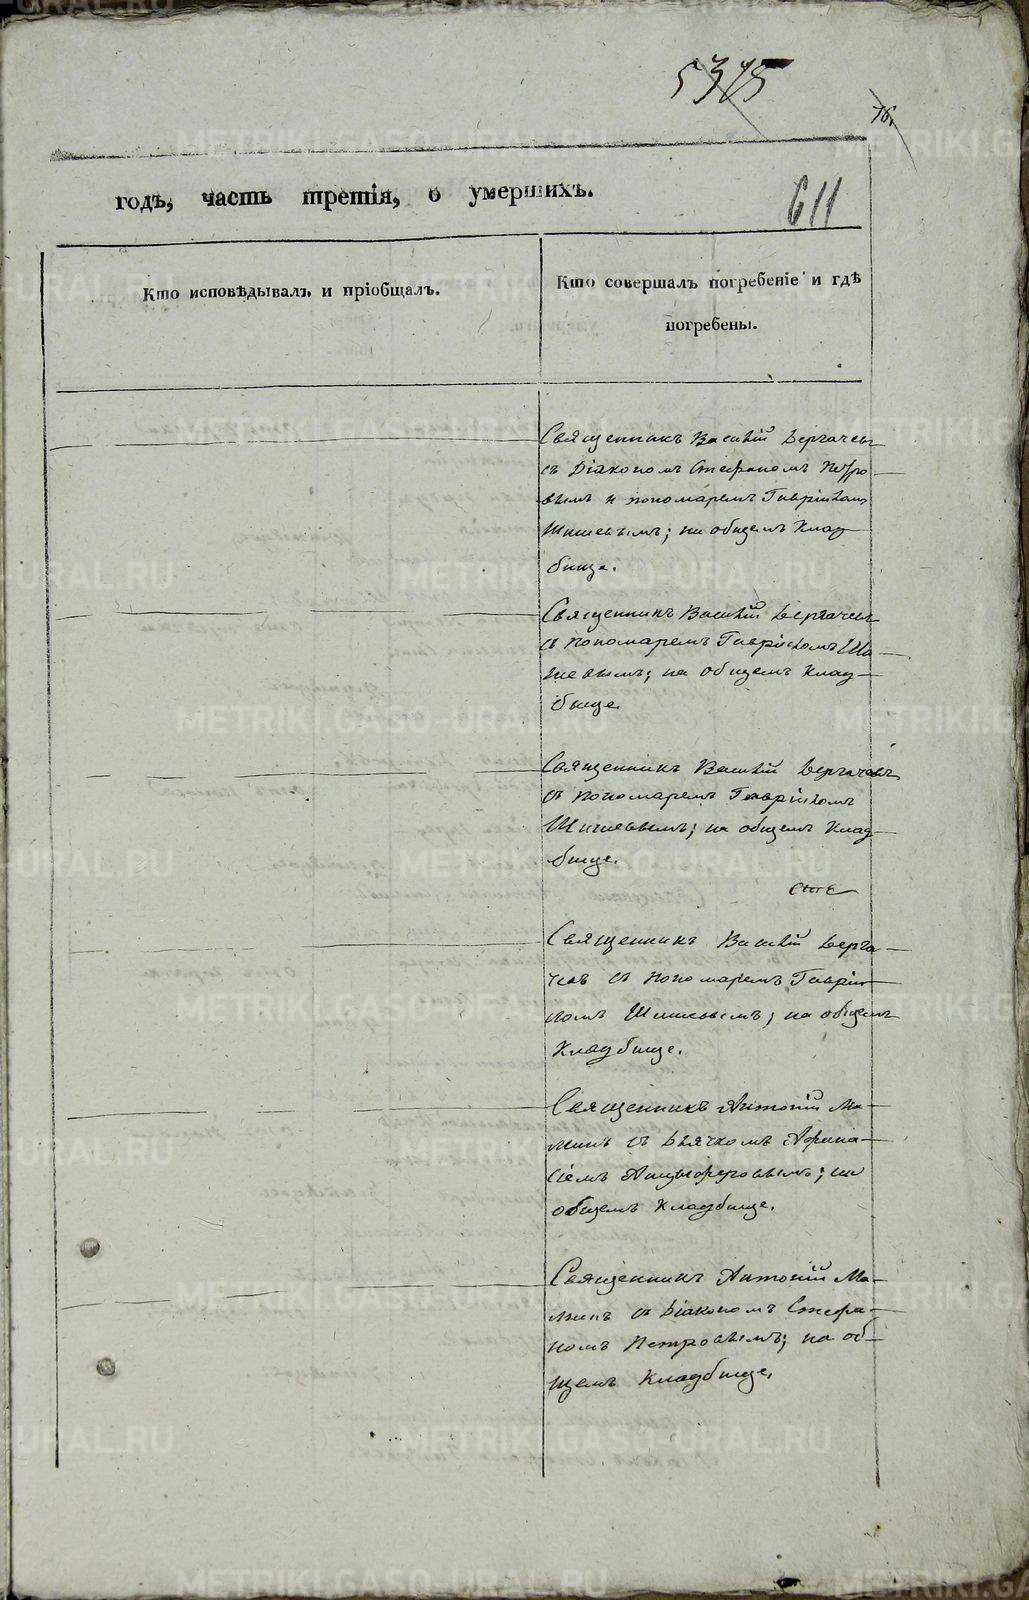 5375
76.
годъ, часть третія, о умершихъ.
611
Кто исповѣдывалъ и пріобщалъ.
Кто совершалъ погребеніе и гдѣ
погребены.
Священникъ Василій Дергачевъ
съ Діакономъ Стефаномъ Петро
вымъ и пономаремъ Гавріиломъ
Шишевымъ; на общемъ Клад
бище.
Священникъ Василій Дергачевъ
съ пономаремъ Гавріиломъ Ши
шевымъ; на общемъ Клад
бище.
Священникъ Василій Дергачевъ
съ пономаремъ Гавріиломъ
Шишевымъ; на общемъ Клад
бище.
Священникъ Василій Дерга
чевъ съ пономаремъ Гаврiи
ломъ Шишевымъ; на общемъ
Кладбище.
Священникъ Антоній Ма
минъ съ Дьячкомъ Афона
сіемъ на
общемъ Кладбище.
Священникъ Антоній Ма
минъ съ Діакономъ Стефа
номъ Петровымъ; на об
щемъ Кладбище.
METRIKI.GASO-URAL.RU